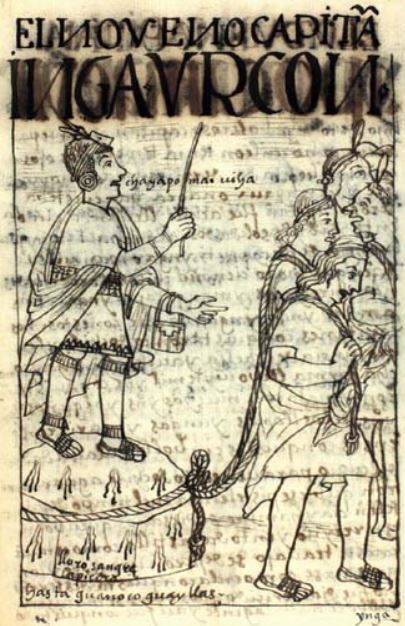 EL NOVENO CAPITÃ
INGA·VRCON·
chayapoma· uiha
lloro sangre
la piedra
hasta guanoco guayllas·
ynga